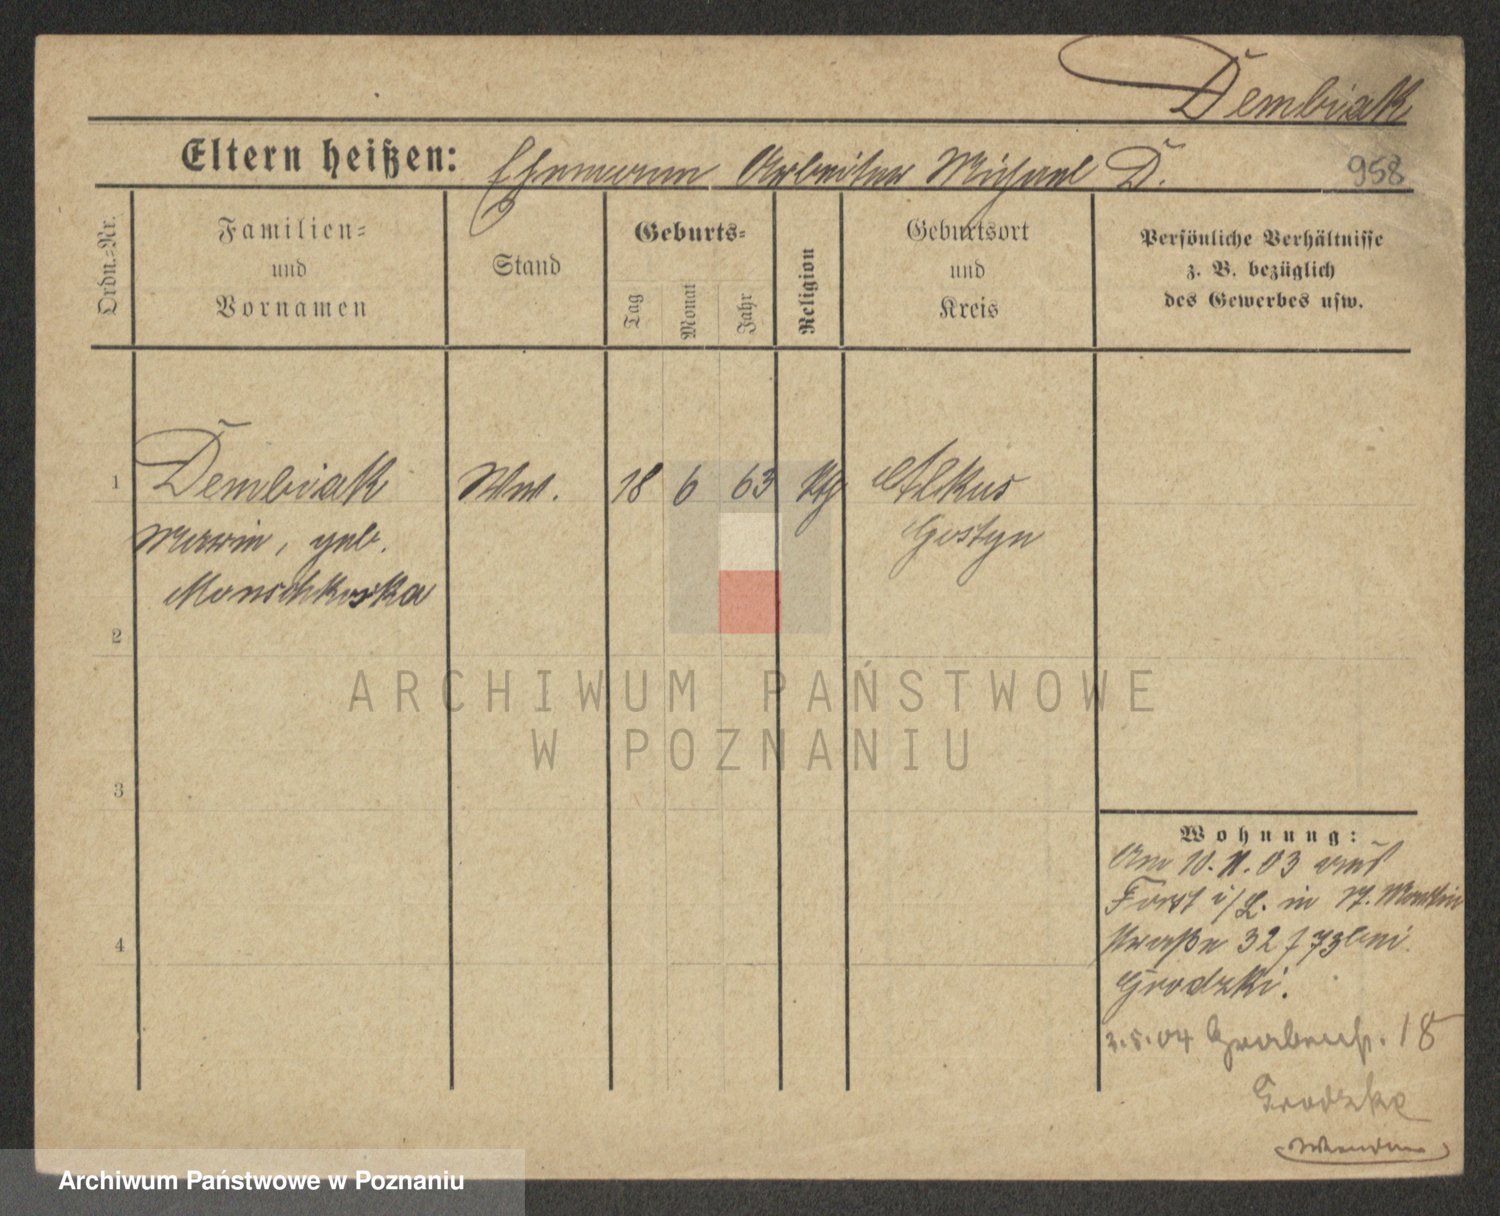 Dembiak
Eltern heißen: Ehemann Arbeiter Michael D.
958
Ordn.-Nr.
Familien-
und
Vornamen
Stand
Geburts-
Tag
Monat
Jahr
Religion
Geburtsort
und
Kreis
Persönliche Verhältnisse
z. B. bezüglich
des Gewerbes usw.
1
Dembiak
Ww.
18 6 63
Alkus
Gostyn
Marie, geb.
2
3
4
ARCHIWUM PAŃSTWOWE
W POZNANIU
Wohnung:
Am 10. 11. 03 aus
Forst i/L. in St. Martin
straße 32 bei
Grodzki.
2.5.04 18
Archiwum Państwowe w Poznaniu